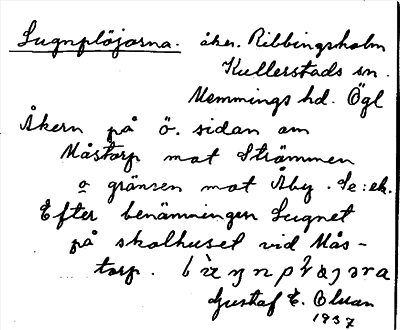 Lugnplöjorna. åker. Ribbingsholm
Kullerstads sn.
Memmings hd. Ögl
Åkern på ö. sidan om
Måstorp mot Strömmen
o gränsen mot Åby. Se: ek.
Efter benämningen Lugnet
på skolhuset vid Mås-
torp.
Gustaf E. Olsson
1937